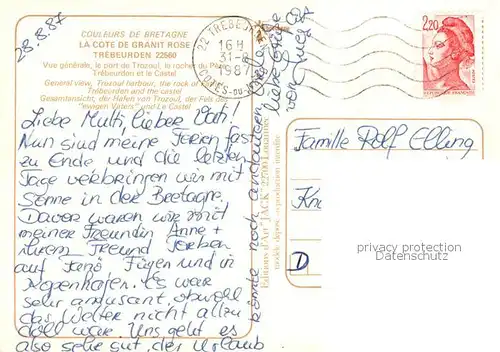 28.8.87
COULEURS DE BRETAGNE
LA COTE DE GRANIT ROSE
TRÉBEURDEN 22560
Vue générale, le port de Trozoul, le rocher du
Trébeurden et le Castel
General view, Trozoul harbour, the rock of
Trébeurden and the castel
Gesamtansicht, der Hafen van Trozoul, der Fels des
"ewigen Vaters" und Le Castel
22 TRÉBEURDEN
16H
31-8
1987
COTES-DU-N
2,20
Liebe Mutti, lieber Vati!
Nun sind meine Ferien fast
zu Ende und die letzten
Tage verbringen wir mit
Sonne in der Bretagne.
Davor waren wir mit
meiner Freundin Anne +
ihrem Freund Torben
auf Fanö, Fügen und in
Kopenhagen. Es war
sehr amüsant, obwohl
das Wetter nicht allzu
doll war. Uns geht es
also sehr gut, der Urlaub
könnte noch andauern.
Liebe Grüße
von
Editions d'Art "JACK" 22700 Louannec
modèle déposé - reproduction interdite
Familie Rolf Elling
Kn
D
privacy protection
VEREINSKARTEN